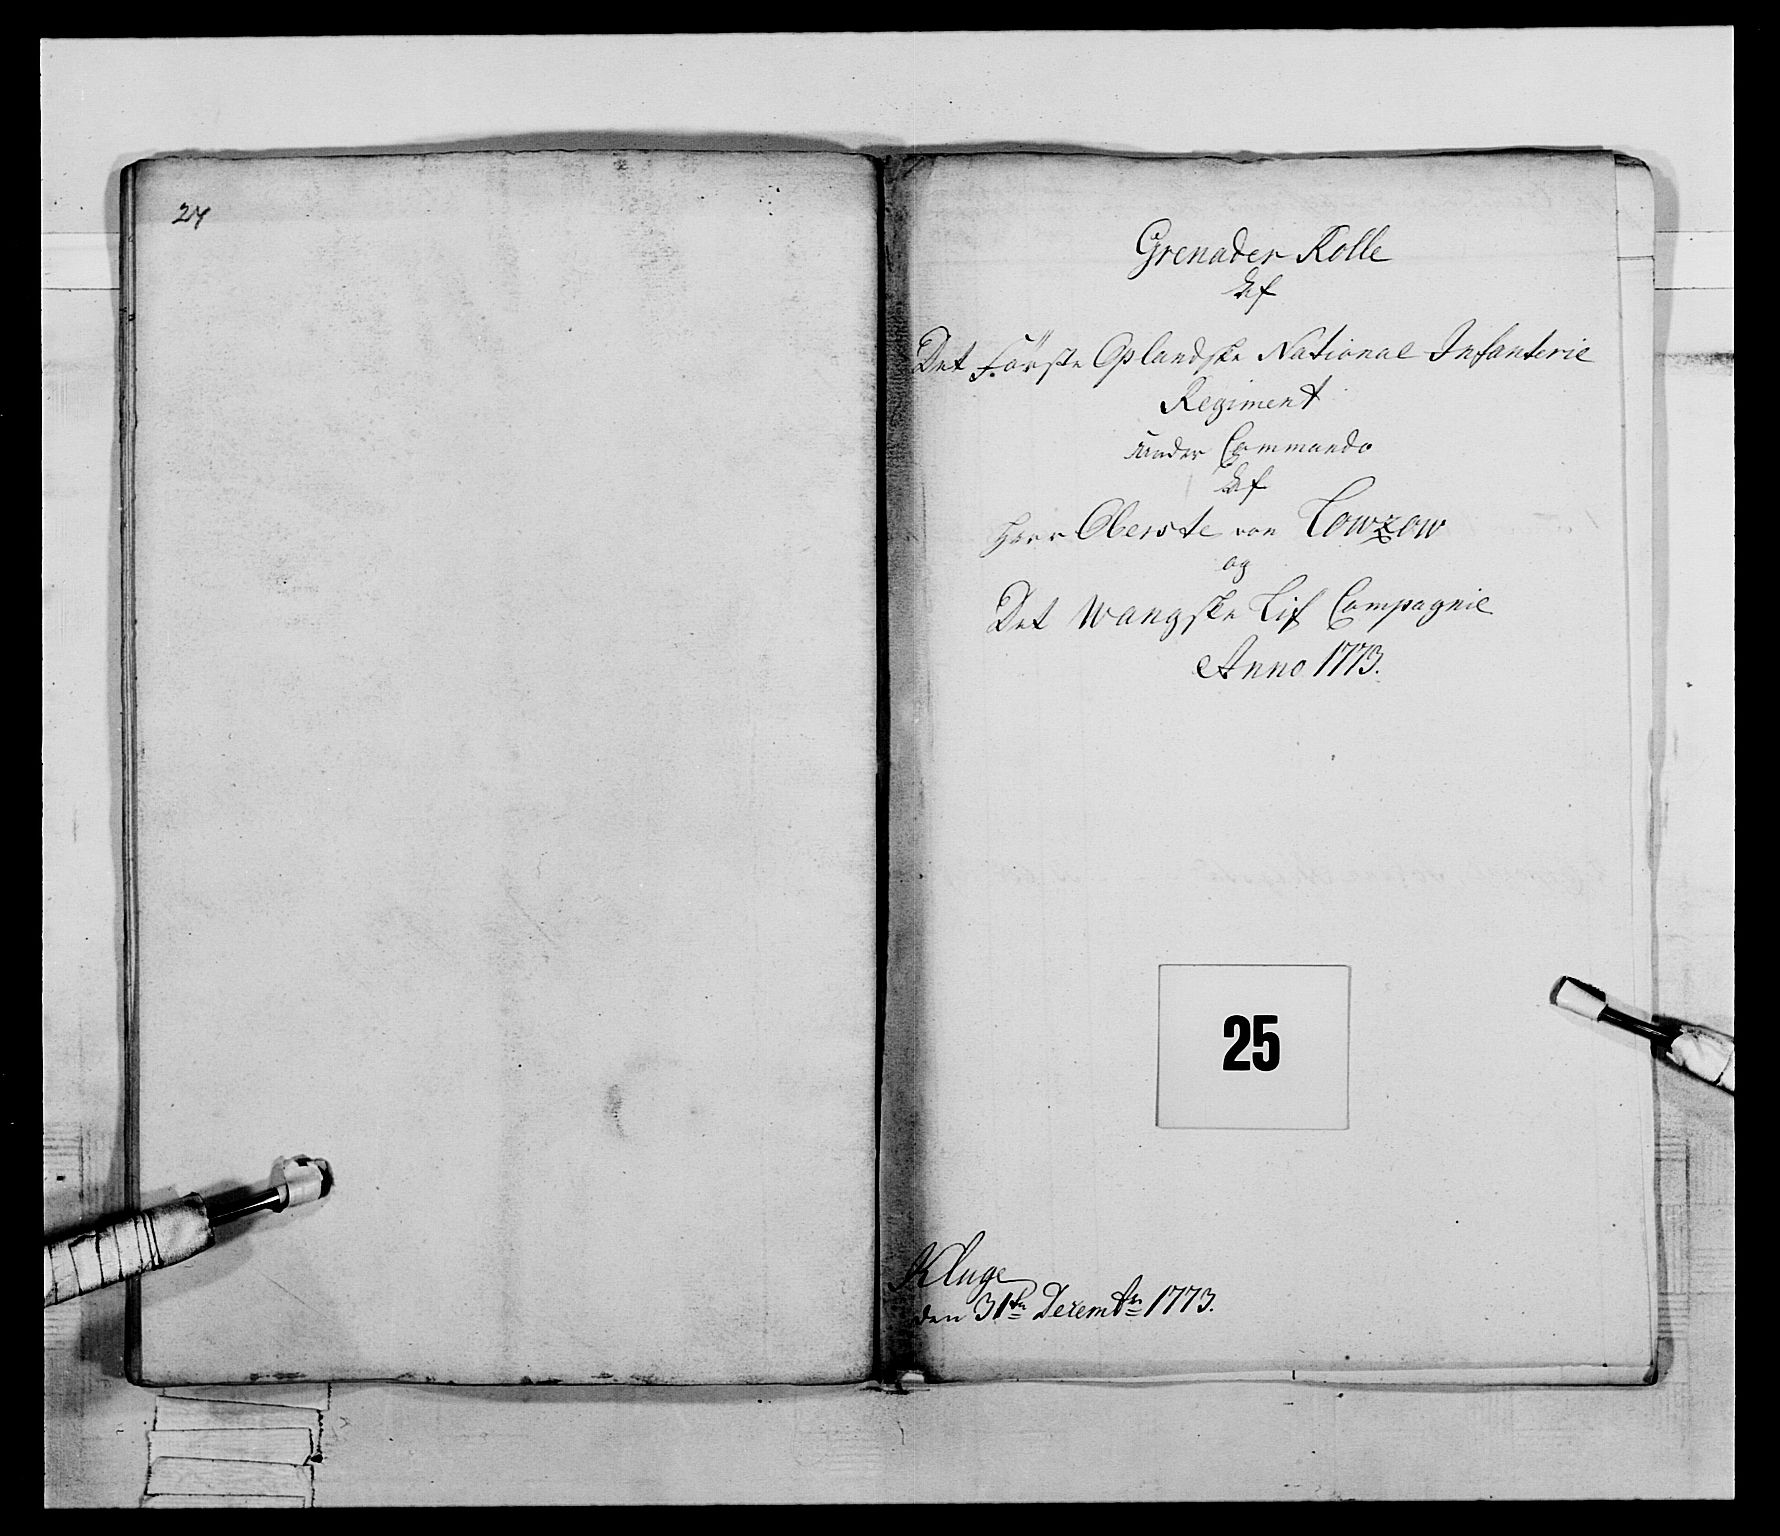 24
Grenader Rolle
Af
Det Förste Oplandske National Infanterie
Regiment
under Commando
Af
Herr Oberste von Lowzow
og
Det Wangske Lif Compagnie
Anno 1773.
25
Kluge
den 31te Decembr 1773.